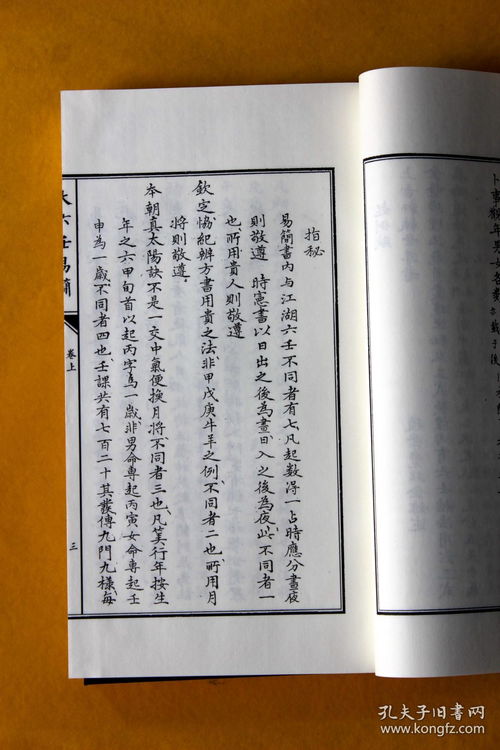 指秘
易簡書內与江湖六壬不同者有七凡起數得一占時應分晝夜
則敬遵 時憲書以日出之後為晝日入之後為夜此不同者一
也所用貴人則敬遵
欽定協紀辦方書用貴之法非甲戊庚牛羊之例不同者二也所用月
將則敬遵
本朝真太陽訣不是一交中氣便換月將不同者三也凡筭行年按生
年之六甲旬首以起丙字為一歲非男命專起丙寅女命專起壬
申為一歲不同者四也壬課共有七百二十其發傳九門九樣每
大六壬易簡
卷上
三
孔夫子旧书网
www.kongfz.com